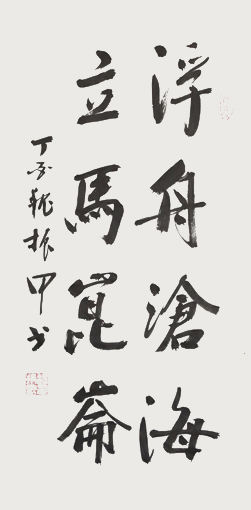 浮舟滄海
立馬崑崙
丁亥 振甲书